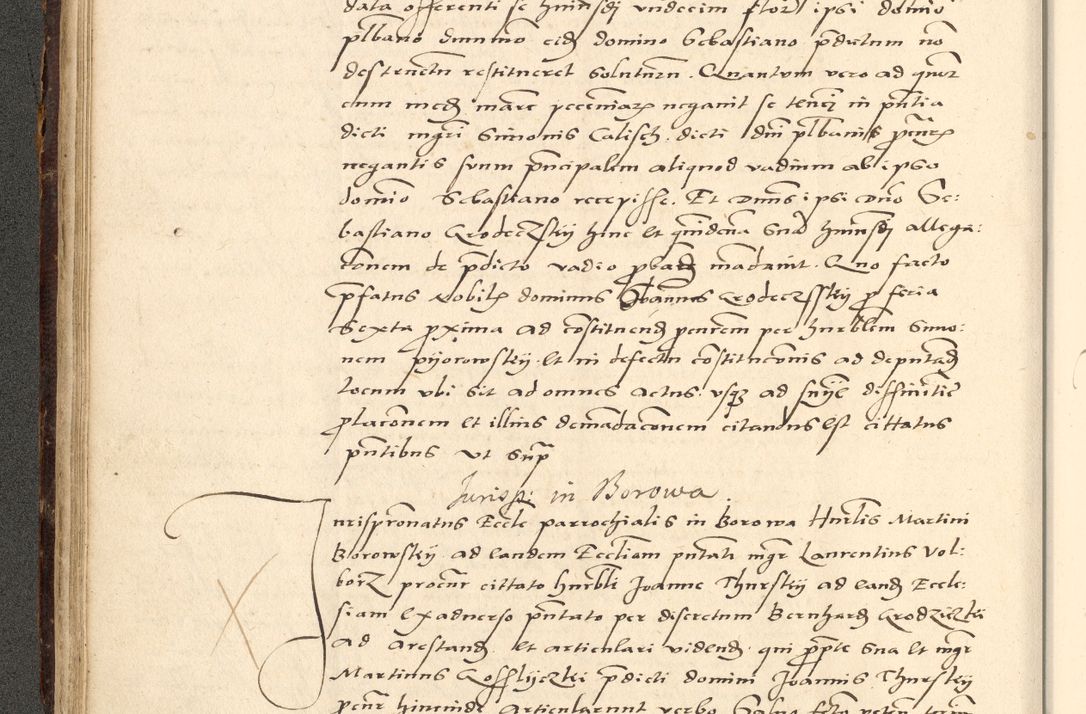 data offerenti se huiusdj vndecim flor ipsi domino
plbano dummo eidꝫ domino Sebastiano pdictum nō
destructū restitueret solutum. Quantum vero ad
eum medꝫ marc negauit se tenerj in pntia
dicti mgri Simonis Calisch. dicti dni plbani
negantis suum principalem aliquod vadium ab ipso
domino Sebastiano recepisse. Et dns ipsi dno Se:
bastiano Grodeczskij hinc et quindena sua huiusdj allega:
tionem de pdicto vadio probare mādauit. Quo facto
pfatus Nobilis dominus Joannes Grodeczsskij p feria
sexta proxima ad cōstituendꝫ per hurblem Simo:
nem pijorowskij et in defectu cōstituconis ad deputandꝫ
locum vbi sit ad omnes actus vsqꝫ ad diffinitie
et illius demādaconem citandus est cittatus
pntibus vt supra
Jurisp: in Borowa.
Jurispronatus Eccle parrochialis in Borowa Hurlis Martini
Borowskij ad eandem Eccliam pntati mgr Laurentius Vol:
borz procur cittato hurbli Joanne Thurskij ad eandꝫ Eccle:
siam ex aduerso pntato per discretum Bernhardꝫ Grodziczki
ad arestandꝫ et articulari videndꝫ qui sua et mgr
Martinus Goslijczki pdicti domini Joannis Thurskij
procur hincinde articularunt verbo